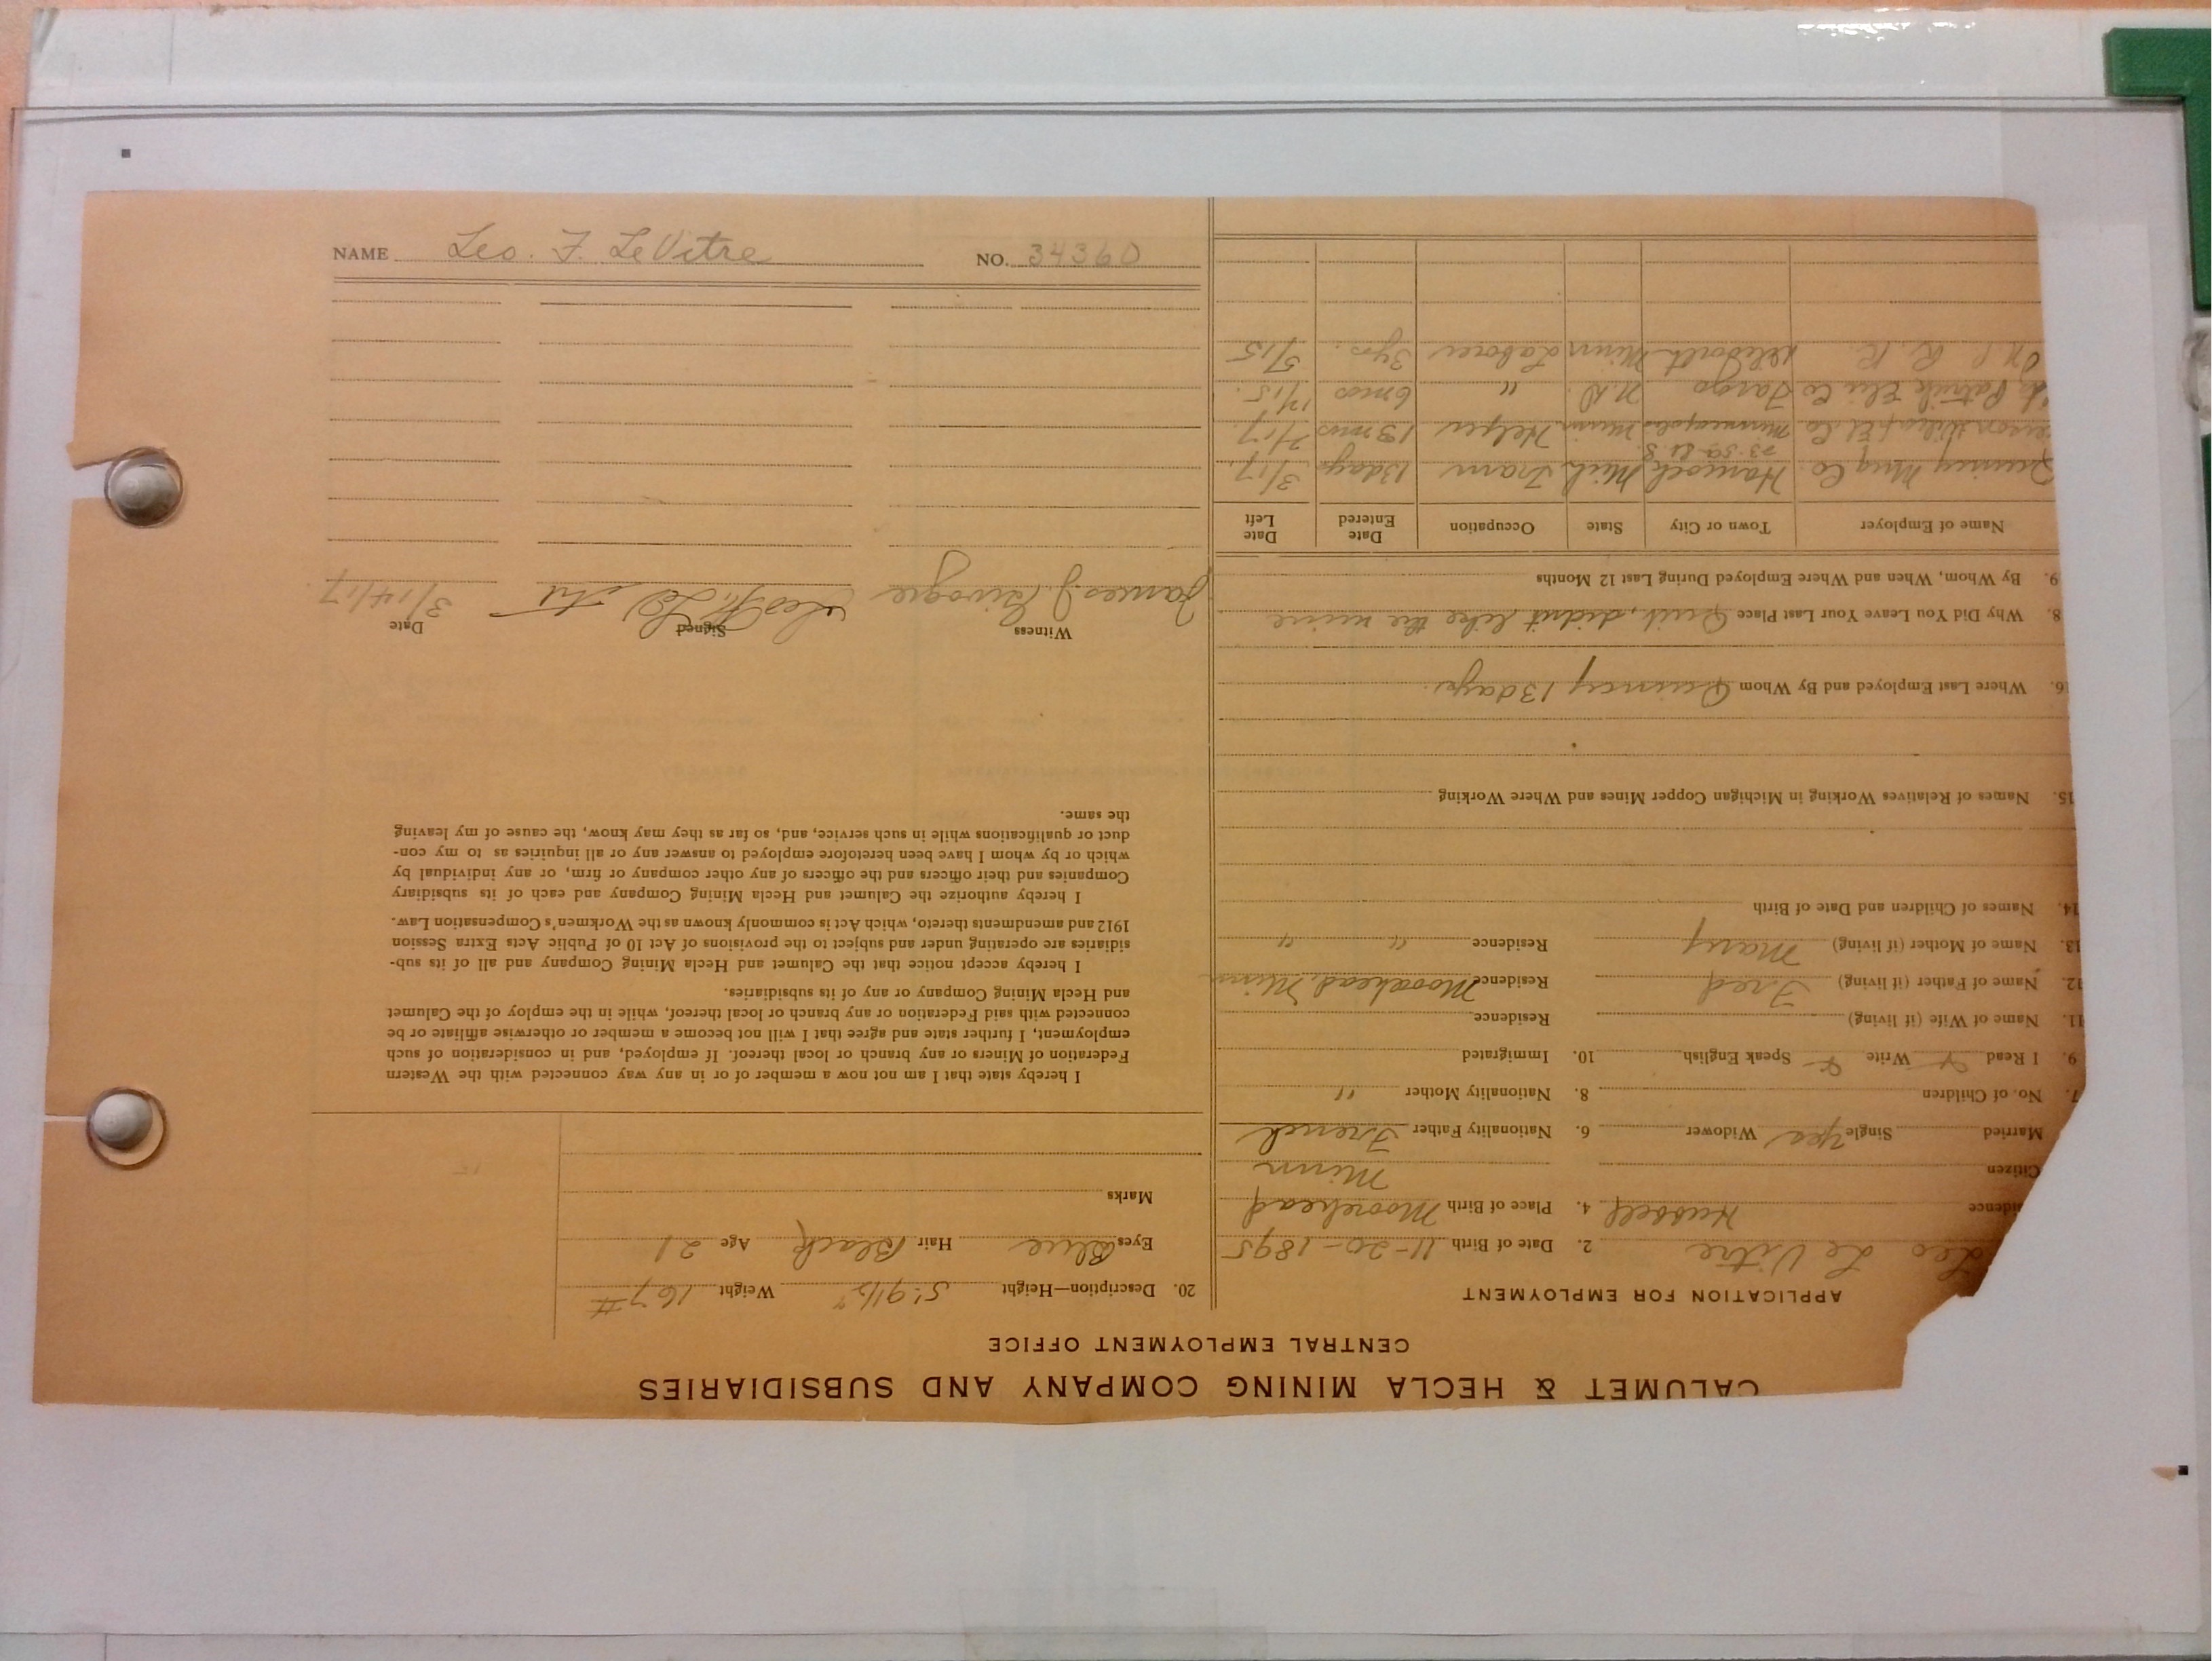 NAME Leo. F. LeVitre NO. 34360
CALUMET & HECLA MINING COMPANY AND SUBSIDIARIES
CENTRAL EMPLOYMENT OFFICE
APPLICATION FOR EMPLOYMENT
Leo Le Vitre 2. Date of Birth 11-20-1895
idence Hubbell 4. Place of Birth Moorehead
Citizen Minn
Married Single Yes Widower 6. Nationality Father French
7. No. of Children 8. Nationality Mother "
9. I Read Write Speak English 10. Immigrated
11. Name of Wife (if living) Residence
12. Name of Father (if living) Fred Residence Moorehead, Minn
13. Name of Mother (if living) Mary Residence " "
14. Names of Children and Date of Birth
15. Names of Relatives Working in Michigan Copper Mines and Where Working
16. Where Last Employed and By Whom Quincy 13 days.
8. Why Did You Leave Your Last Place Quit, didn't like the mine
9. By Whom, When and Where Employed During Last 12 Months
Name of Employer Town or City State Occupation Date Entered Date Left
Quincy Mng Co. Hancock Mich Tram 13 days 3/17.
Wilcox El Co Minneapolis Minn Helper 13 mos 2/17.
Patrick Elec Co Fargo N.D. " 6 mos 12/15.
N P. R. R. Minn Laborer 3 yrs. 5/15
20. Description—Height 5' 9 1/2" Weight 167 #
Eyes Blue Hair Black Age 21
Marks
I hereby state that I am not now a member of or in any way connected with the Western
Federation of Miners or any branch or local thereof. If employed, and in consideration of such
employment, I further state and agree that I will not become a member or otherwise affiliate or be
connected with said Federation or any branch or local thereof, while in the employ of the Calumet
and Hecla Mining Company or any of its subsidiaries.
I hereby accept notice that the Calumet and Hecla Mining Company and all of its sub-
sidiaries are operating under and subject to the provisions of Act 10 of Public Acts Extra Session
1912 and amendments thereto, which Act is commonly known as the Workmen's Compensation Law.
I hereby authorize the Calumet and Hecla Mining Company and each of its subsidiary
Companies and their officers and the officers of any other company or firm, or any individual by
which or by whom I have been heretofore employed to answer any or all inquiries as to my con-
duct or qualifications while in such service, and, so far as they may know, the cause of my leaving
the same.
Witness Signed Date
James J. Leo F. Le Vitre 3/14/17